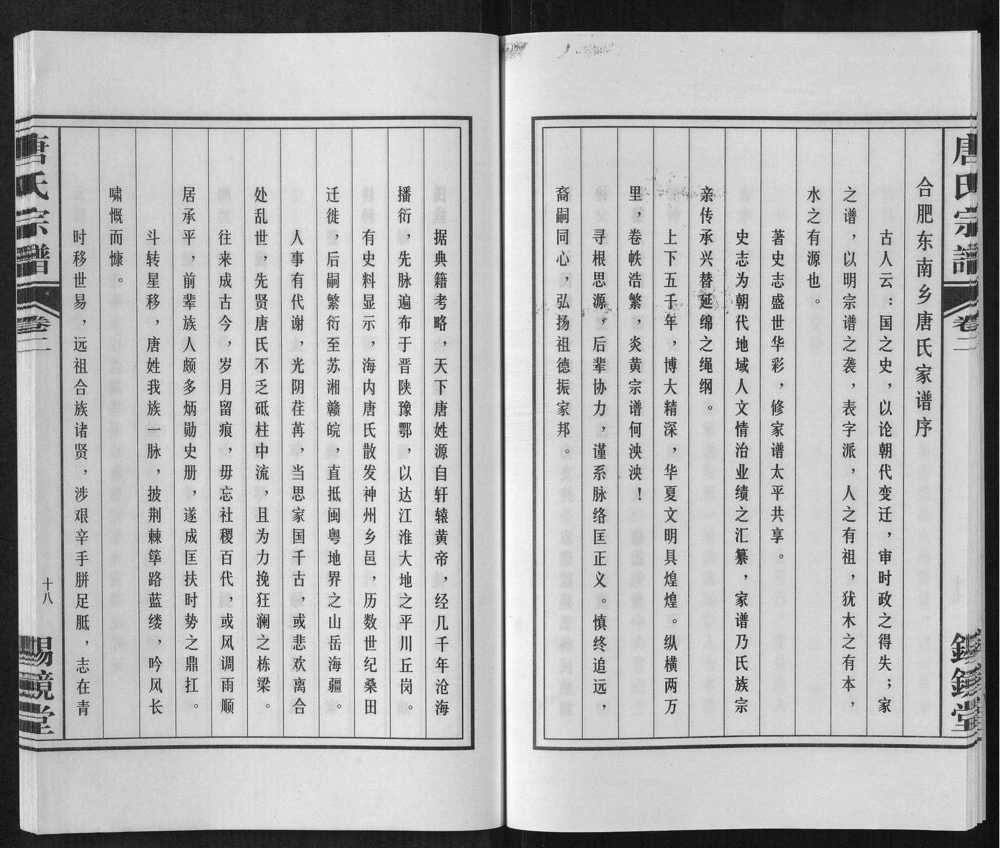 唐氏宗谱
卷二
合肥东南乡唐氏家谱序
古人云：国之史，以论朝代变迁，审时政之得失；家
之谱，以明宗谱之袭，表字派，人之有祖，犹木之有本，
水之有源也。
著史志盛世华彩，修家谱太平共享。
史志为朝代地域人文情治业绩之汇纂，家谱乃氏族宗
亲传承兴替延绵之绳纲。
上下五千年，博大精深，华夏文明具煌煌。纵横两万
里，卷帙浩繁，炎黄宗谱何泱泱！
寻根思源，后辈协力，谨系脉络匡正义。慎终追远，
裔嗣同心，弘扬祖德振家邦。
据典籍考略，天下唐姓源自轩辕黄帝，经几千年沧海
播衍，先脉遍布于晋陕豫鄂，以达江淮大地之平川丘岗。
有史料显示，海内唐氏散发神州乡邑，历数世纪桑田
迁徙，后嗣繁衍至苏湘赣皖，直抵闽粤地界之山岳海疆。
人事有代谢，光阴荏苒，当思家国千古，或悲欢离合
处乱世，先贤唐氏不乏砥柱中流，且为力挽狂澜之栋梁。
往来成古今，岁月留痕，毋忘社稷百代，或风调雨顺
居承平，前辈族人颇多炳勋史册，遂成匡扶时势之鼎扛。
斗转星移，唐姓我族一脉，披荆棘筚路蓝缕，吟风长
啸慨而慷。
时移世易，远祖合族诸贤，涉艰辛手胼足胝，志在青
唐氏宗譜
卷二
十八
锡鏡堂